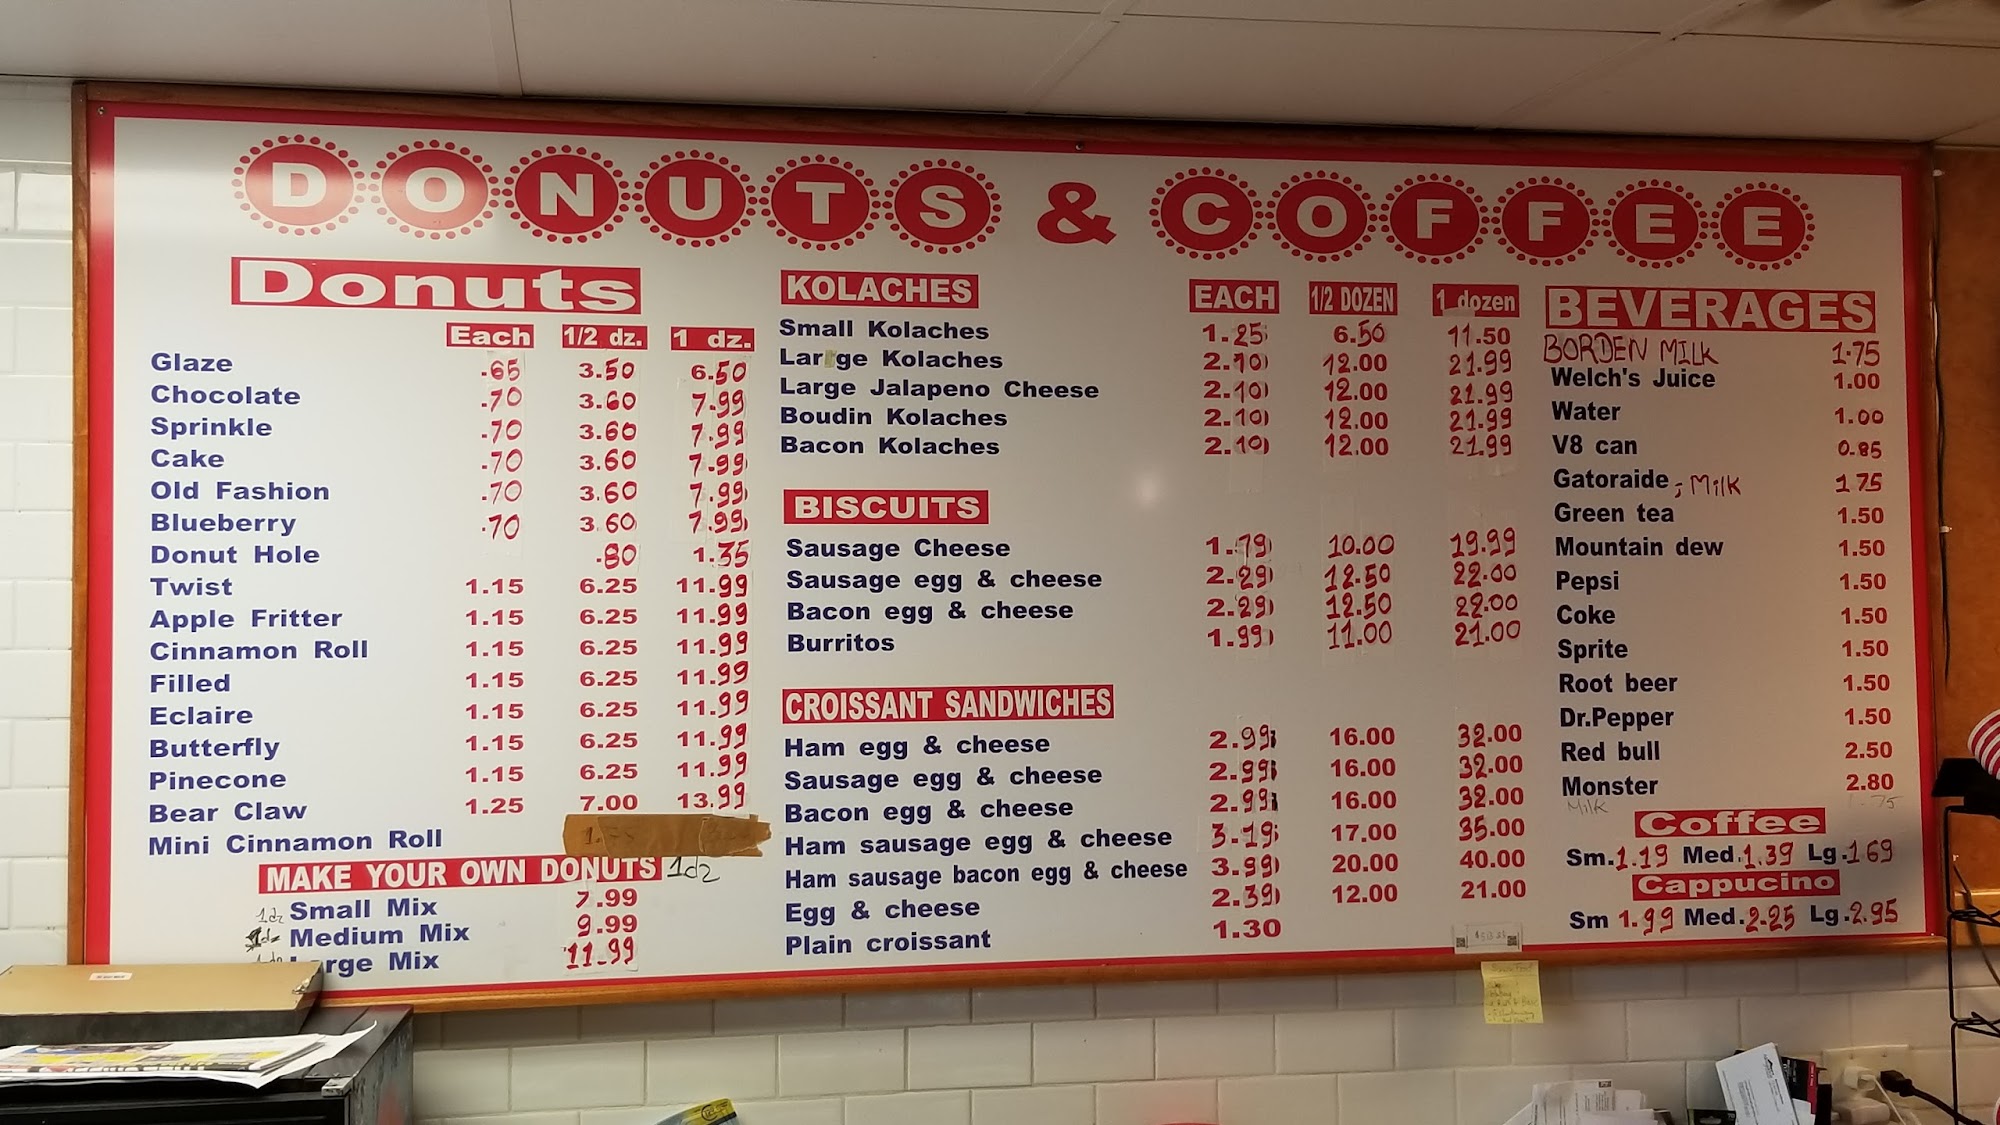 DONUTS & COFFEE
Donuts
Each 1/2 dz. 1 dz.
Glaze .65 3.50 6.50
Chocolate .70 3.60 7.99
Sprinkle .70 3.60 7.99
Cake .70 3.60 7.99
Old Fashion .70 3.60 7.99
Blueberry .70 3.60 7.99
Donut Hole .80 1.35
Twist 1.15 6.25 11.99
Apple Fritter 1.15 6.25 11.99
Cinnamon Roll 1.15 6.25 11.99
Filled 1.15 6.25 11.99
Eclaire 1.15 6.25 11.99
Butterfly 1.15 6.25 11.99
Pinecone 1.15 6.25 11.99
Bear Claw 1.25 7.00 13.99
Mini Cinnamon Roll
MAKE YOUR OWN DONUTS 1dz
1dz Small Mix 7.99
Medium Mix 9.99
rge Mix 11.99
KOLACHES EACH 1/2 DOZEN 1 dozen
Small Kolaches 1.25 6.50 11.50
Large Kolaches 2.10 12.00 21.99
Large Jalapeno Cheese 2.10 12.00 21.99
Boudin Kolaches 2.10 12.00 21.99
Bacon Kolaches 2.10 12.00 21.99
BISCUITS
Sausage Cheese 1.79 10.00 19.99
Sausage egg & cheese 2.29 12.50 22.00
Bacon egg & cheese 2.29 12.50 22.00
Burritos 1.99 11.00 21.00
CROISSANT SANDWICHES
Ham egg & cheese 2.99 16.00 32.00
Sausage egg & cheese 2.99 16.00 32.00
Bacon egg & cheese 2.99 16.00 32.00
Ham sausage egg & cheese 3.19 17.00 35.00
Ham sausage bacon egg & cheese 3.99 20.00 40.00
Egg & cheese 2.39 12.00 21.00
Plain croissant 1.30
BEVERAGES
BORDEN MILK 1.75
Welch's Juice 1.00
Water 1.00
V8 can 0.85
Gatoraide, Milk 1.75
Green tea 1.50
Mountain dew 1.50
Pepsi 1.50
Coke 1.50
Sprite 1.50
Root beer 1.50
Dr.Pepper 1.50
Red bull 2.50
Monster 2.80
Milk 1.75
Coffee
Sm. 1.19 Med. 1.39 Lg. 1.69
Cappucino
Sm 1.99 Med. 2.25 Lg. 2.95